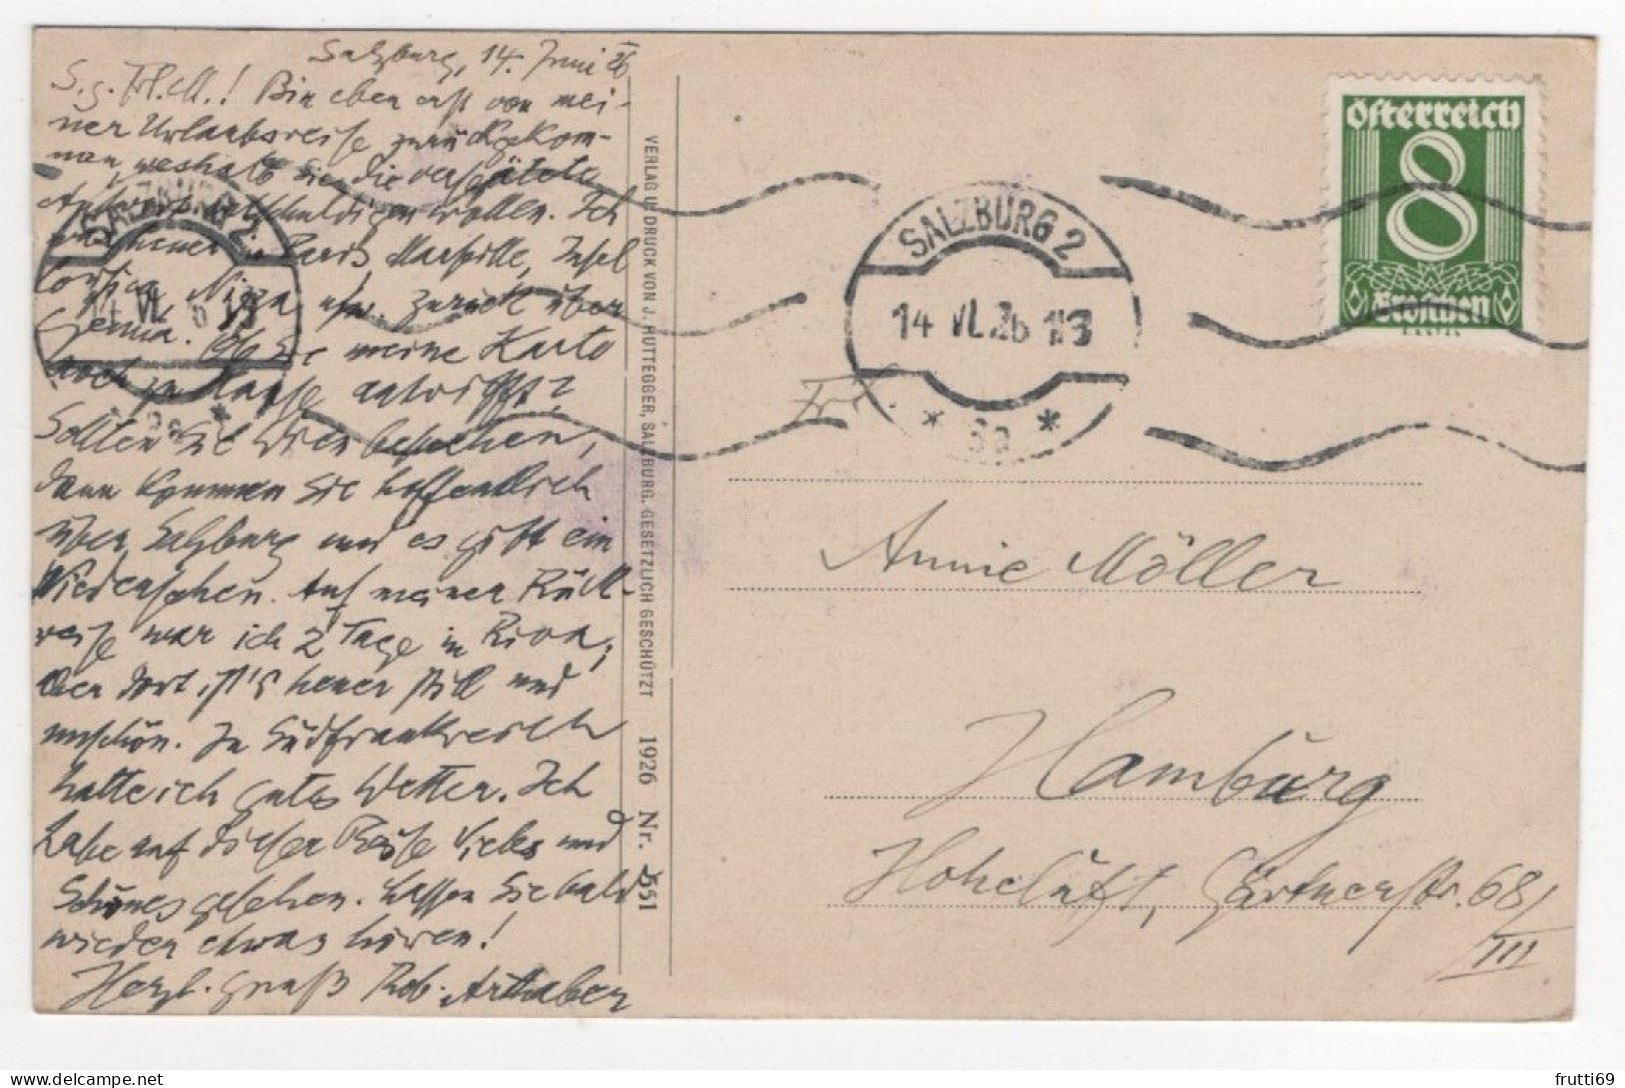 Salzburg, 14. Juni 26
S. g. Frl. M.! Bin eben erst von mei-
ner Urlaubsreise zurückgekom-
men, weshalb Sie die verspätete
Antwort entschuldigen wollen. Ich
war heuer in Paris, Marseille, Insel
Corsica, Nizza usw. Zurück über
Genua. Ob Sie meine Karte
noch zu Hause antrifft?
Sollten Sie Wien besuchen,
dann kommen Sie hoffentlich
über Salzburg und es gibt ein
Wiedersehen. Auf meiner Rück-
reise war ich 2 Tage in Riva;
aber dort ist's heuer still und
unschön. In Südfrankreich
hatte ich gutes Wetter. Ich
habe auf dieser Reise Vieles und
Schönes gesehen. Lassen Sie bald
wieder etwas hören!
Herzl. Gruß Rob. Arthaber
SALZBURG 2
14 VI 26
VERLAG U. DRUCK VON J. HUTTEGGER, SALZBURG. GESETZLICH GESCHÜTZT 1926 Nr. 551
SALZBURG 2
14 VI.26
* 3a *
Österreich
8
Groschen
Frl.
Annie Möller
Hamburg
Hoheluft, Gärtnerstr. 68/
III
frutti69